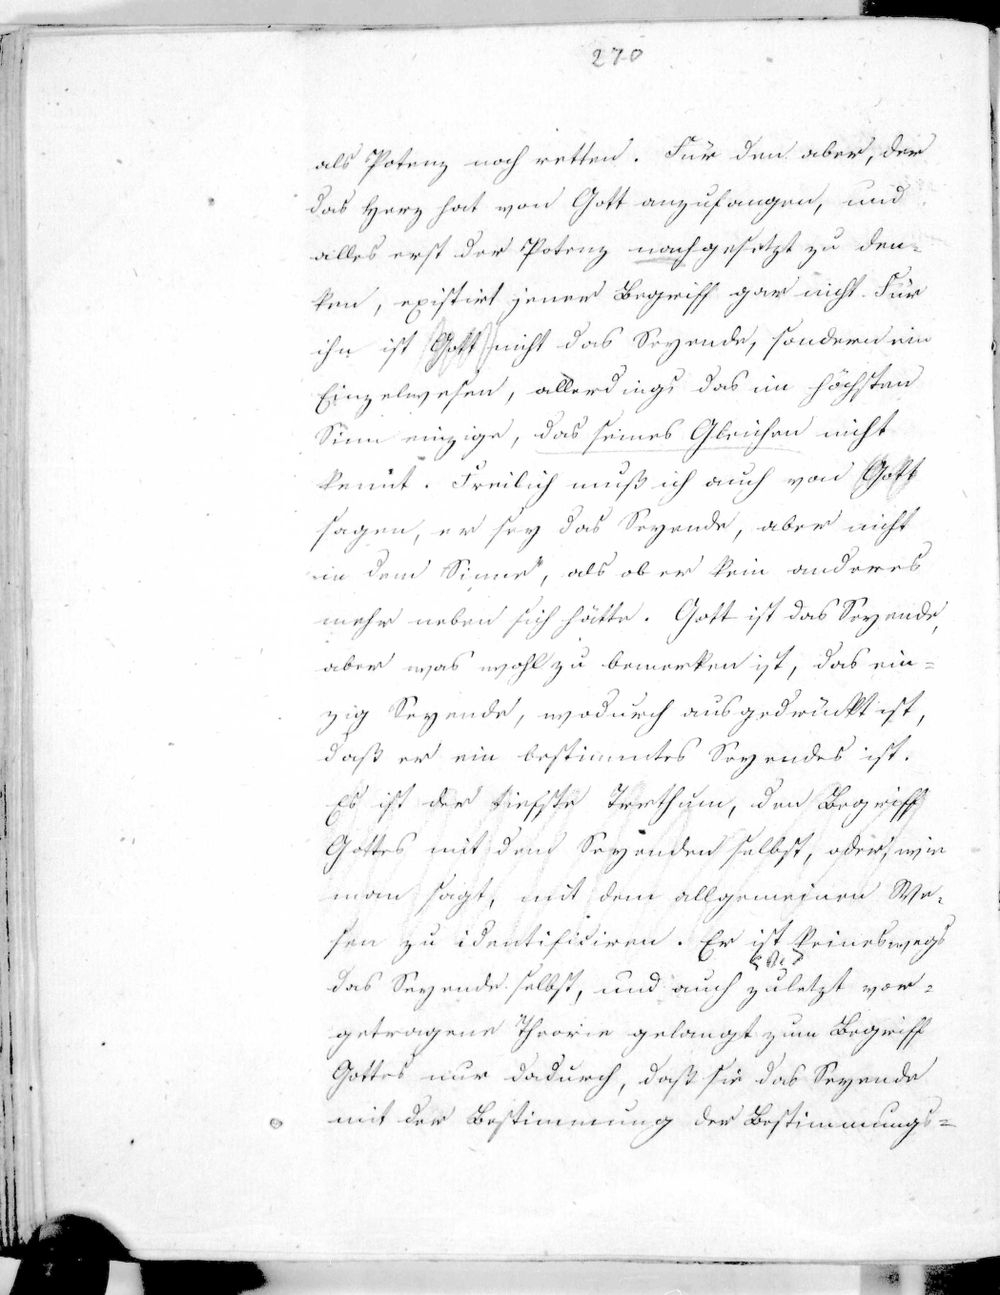 270
als Potenz noch retten. Für den aber, der
das Herz hat von Gott anzufangen, und
alles erst der Potenz nachgesetzt zu den-
ken, existirt jener Begriff gar nicht. Für
ihn ist Gott nicht das Seyende, sondern ein
Einzelwesen, allerdings das im höchsten
Sinn einzige, das seines Gleichen nicht
kennt. Freilich muß ich auch von Gott
sagen, er sey das Seyende, aber nicht
in dem Sinne, als ob er kein anderes
mehr neben sich hätte. Gott ist das Seyende,
aber was wohl zu bemerken ist, das ein=
zig Seyende, wodurch ausgedrückt ist,
daß er ein bestimmtes Seyendes ist.
Es ist der tiefste Irrthum, den Begriff
Gottes mit dem Seyenden selbst, oder, wie
man sagt, mit dem allgemeinen We-
sen zu identificiren. Er ist keineswegs
die
das Seyende selbst, und auch zuletzt vor=
getragene Theorie gelangt zum Begriff
Gottes nur dadurch, daß sie das Seyende
mit der Bestimmung der Bestimmungs=